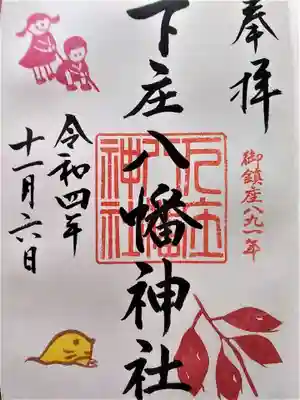 奉拝
御鎮座八九一年
下庄八幡神社
下庄八幡神社
令和四年
十一月六日